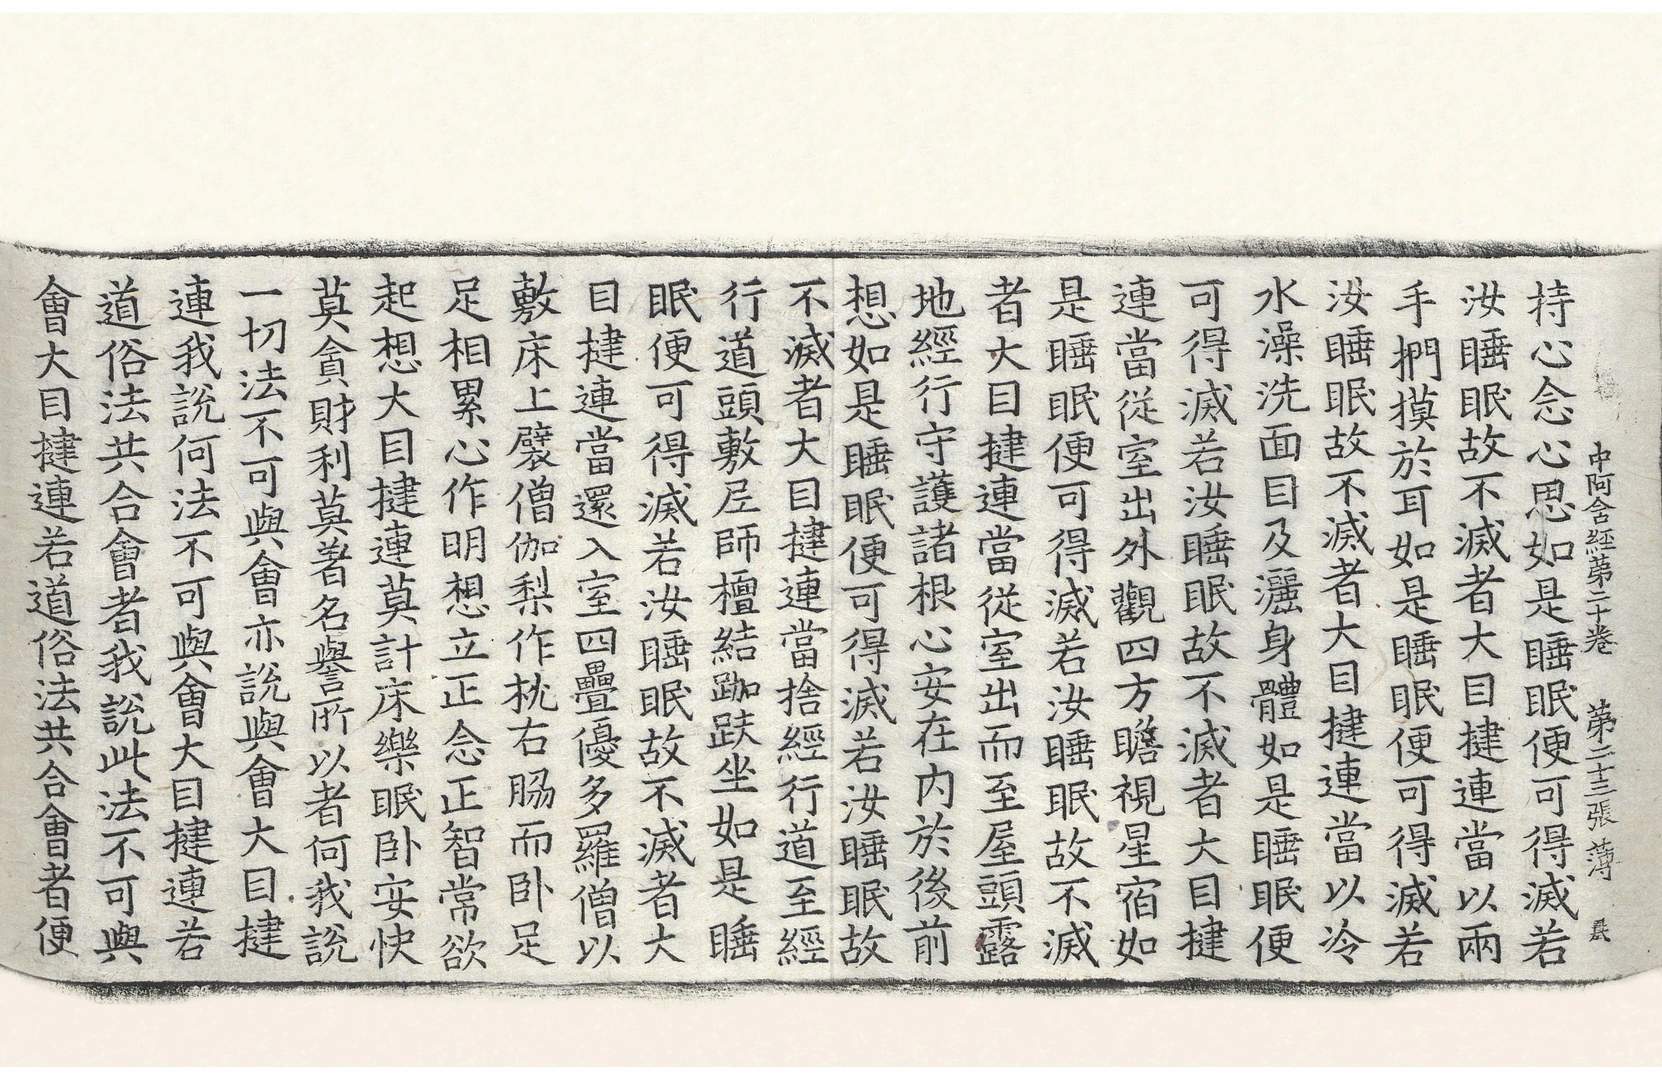 中阿含經第二十卷　第二十三張　薄　晨
持心念心思如是睡眠便可得滅若
汝睡眠故不滅者大目揵連當以兩
手捫摸於耳如是睡眠便可得滅若
汝睡眠故不滅者大目揵連當以冷
水澡洗面目及灑身體如是睡眠便
可得滅若汝睡眠故不滅者大目揵
連當從室出外觀四方瞻視星宿如
是睡眠便可得滅若汝睡眠故不滅
者大目揵連當從室出而至屋頭露
地經行守護諸根心安在內於後前
想如是睡眠便可得滅若汝睡眠故
不滅者大目揵連當捨經行道至經
行道頭敷尼師檀結跏趺坐如是睡
眠便可得滅若汝睡眠故不滅者大
目揵連當還入室四疊優多羅僧以
敷床上襞僧伽梨作枕右脇而卧足
足相累心作明想立正念正智常欲
起想大目揵連莫計床樂眠卧安快
莫貪財利莫著名譽所以者何我說
一切法不可與會亦說與會大目揵
連我說何法不可與會大目揵連若
道俗法共合會者我說此法不可與
會大目揵連若道俗法共合會者便